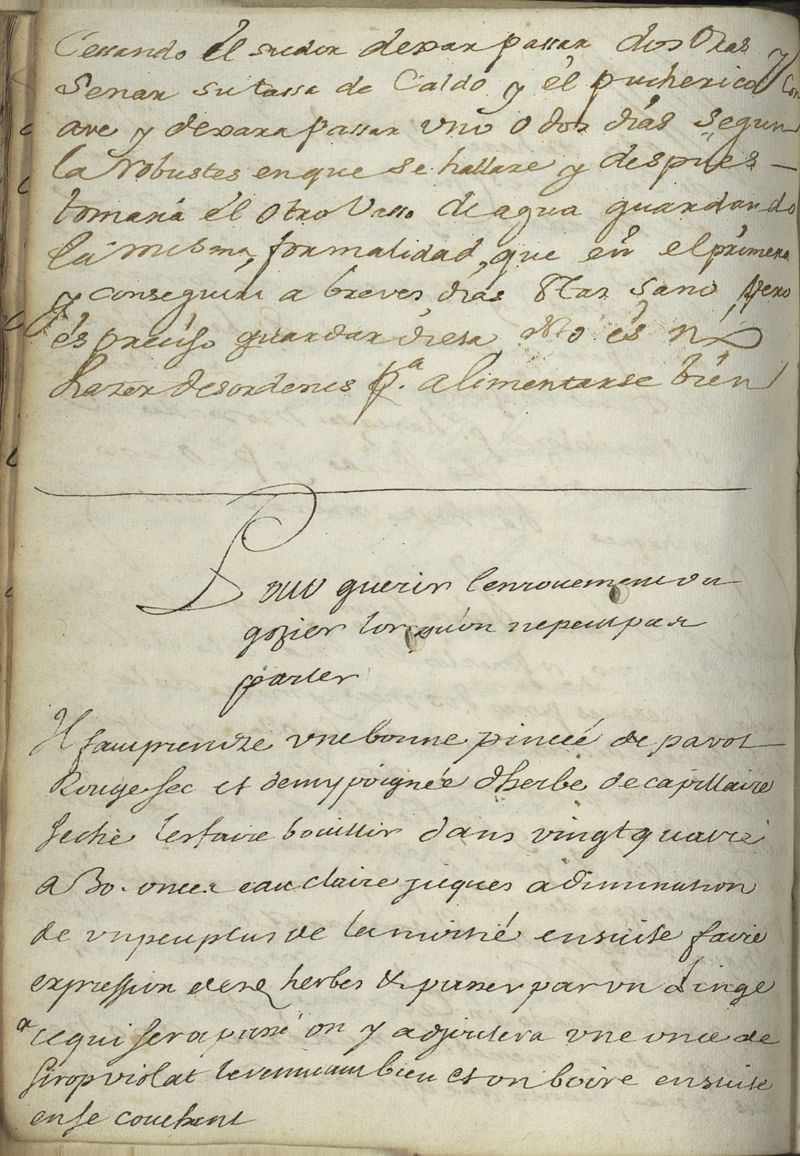 Cessando él sudor dexar passar dos Oras y
Senar su tassa de Caldo y él pucherico Con
ave y dexara passar uno o dos dias segun
la robustes enque se hallare y despues
tomará él otro Vasso de agua guardando
la misma formalidad que en el primera
y conseguira a breves dias Star sano pero
és preciso guardar dieta No és
hazer desordenes p.a alimentarse bien
Pour guerir l'enrouement du
gozier lorsquon nepeut pas
parler
Il faut prendre une bonne pinceé de pavot
Rouge sec et demy poignée dherbe de capillaire
seché les faire bouillir dans vingt quatre
a 30. onces eau claire juques a diminution
de un peu plus de la moitié ensuite faire
expression desd herbes & passer par un Linge
a ce qui sera passé on y adjoutera une once de
sirop violat le remuant bien et on boire ensuite
en se couchant